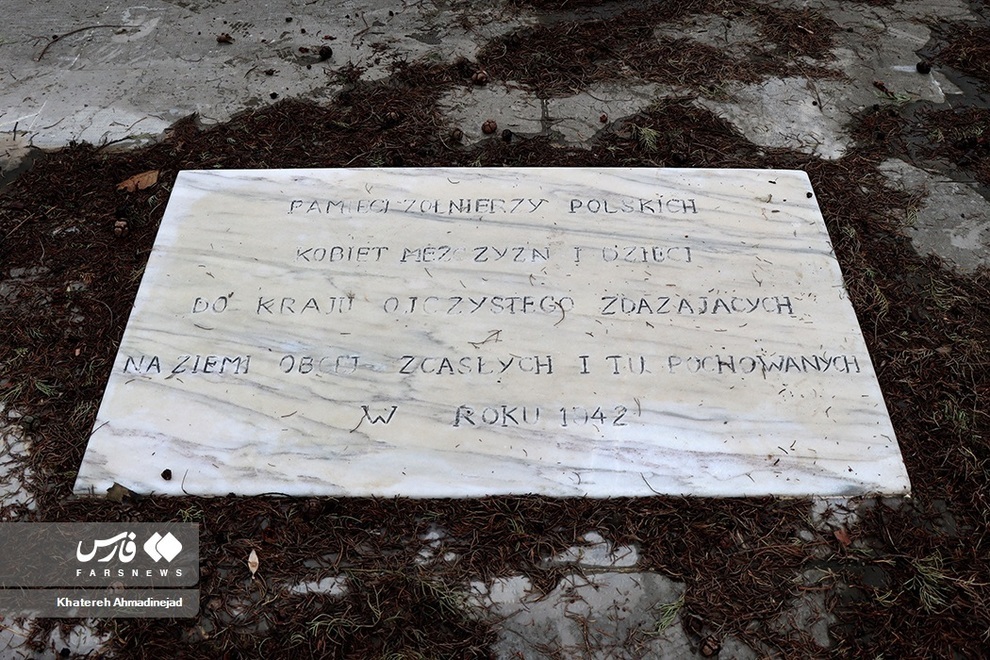 PAMIECI ZOŁNIERZY POLSKICH
KOBIET MEZCZYZN I DZIECI
DO KRAJU OJCZYSTEGO ZDAZAJACYCH
A
NA ZIEMI OBCEJ ZGASŁYCH I TU POCHOWANYCH
W ROKU 1942
فارس
FARSNEWS
Khatereh Ahmadinejad